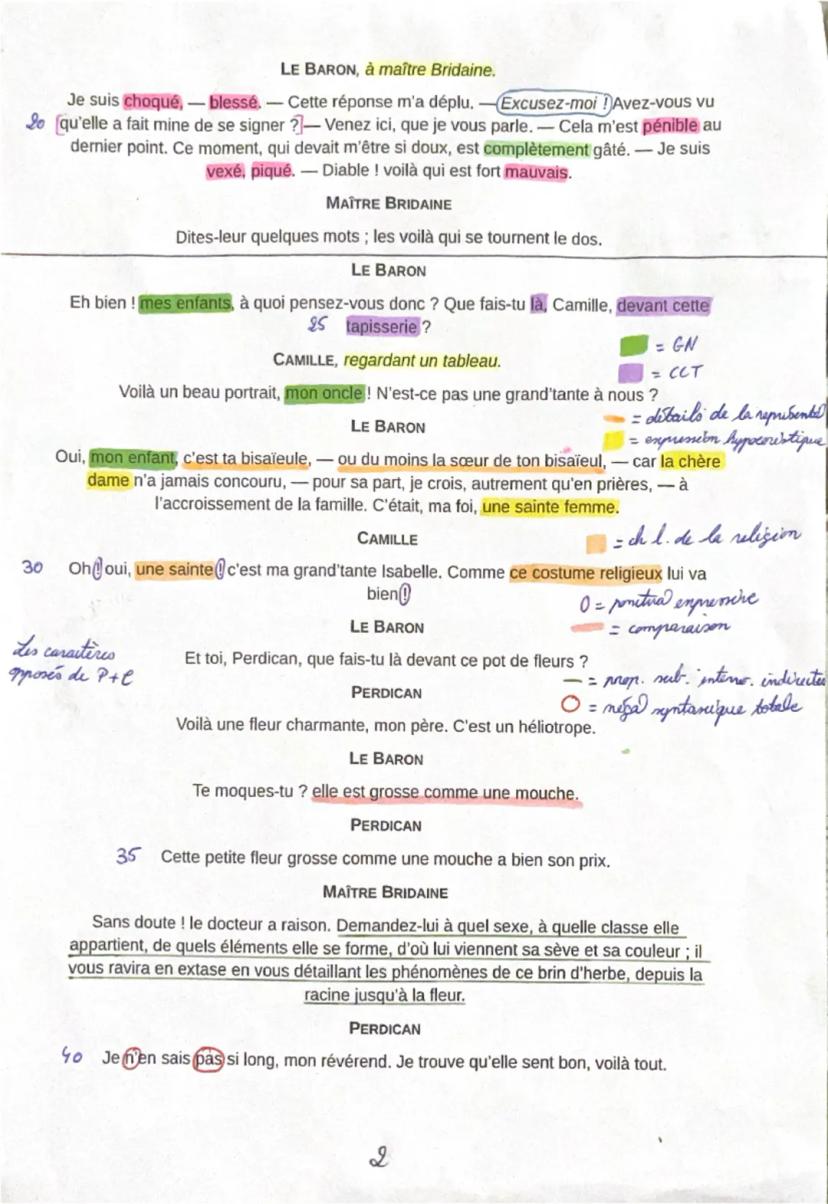 LE BARON, à maître Bridaine.
Je suis choqué, — blessé. — Cette réponse m'a déplu. — Excusez-moi ! Avez-vous vu
20 [qu'elle a fait mine de se signer ?] — Venez ici, que je vous parle. — Cela m'est pénible au
dernier point. Ce moment, qui devait m'être si doux, est complètement gâté. — Je suis
vexé, piqué. — Diable ! voilà qui est fort mauvais.
MAÎTRE BRIDAINE
Dites-leur quelques mots ; les voilà qui se tournent le dos.
LE BARON
Eh bien ! mes enfants, à quoi pensez-vous donc ? Que fais-tu là, Camille, devant cette
25 tapisserie ?
= GN
CAMILLE, regardant un tableau.
= CCT
Voilà un beau portrait, mon oncle ! N'est-ce pas une grand'tante à nous ?
= détails de la
LE BARON
= expression hypocoristique
Oui, mon enfant, c'est ta bisaïeule, — ou du moins la sœur de ton bisaïeul, — car la chère
dame n'a jamais concouru, — pour sa part, je crois, autrement qu'en prières, — à
l'accroissement de la famille. C'était, ma foi, une sainte femme.
CAMILLE
= ch l. de la religion
30 Oh ! oui, une sainte ! c'est ma grand'tante Isabelle. Comme ce costume religieux lui va
bien !
0 = expressive
LE BARON
= comparaison
Les caractères
opposés de P+C
Et toi, Perdican, que fais-tu là devant ce pot de fleurs ?
= prop. sub. interro. indirectes
PERDICAN
= néga syntaxique totale
Voilà une fleur charmante, mon père. C'est un héliotrope.
LE BARON
Te moques-tu ? elle est grosse comme une mouche.
PERDICAN
35 Cette petite fleur grosse comme une mouche a bien son prix.
MAÎTRE BRIDAINE
Sans doute ! le docteur a raison. Demandez-lui à quel sexe, à quelle classe elle
appartient, de quels éléments elle se forme, d'où lui viennent sa sève et sa couleur ; il
vous ravira en extase en vous détaillant les phénomènes de ce brin d'herbe, depuis la
racine jusqu'à la fleur.
PERDICAN
40 Je n'en sais pas si long, mon révérend. Je trouve qu'elle sent bon, voilà tout.
2